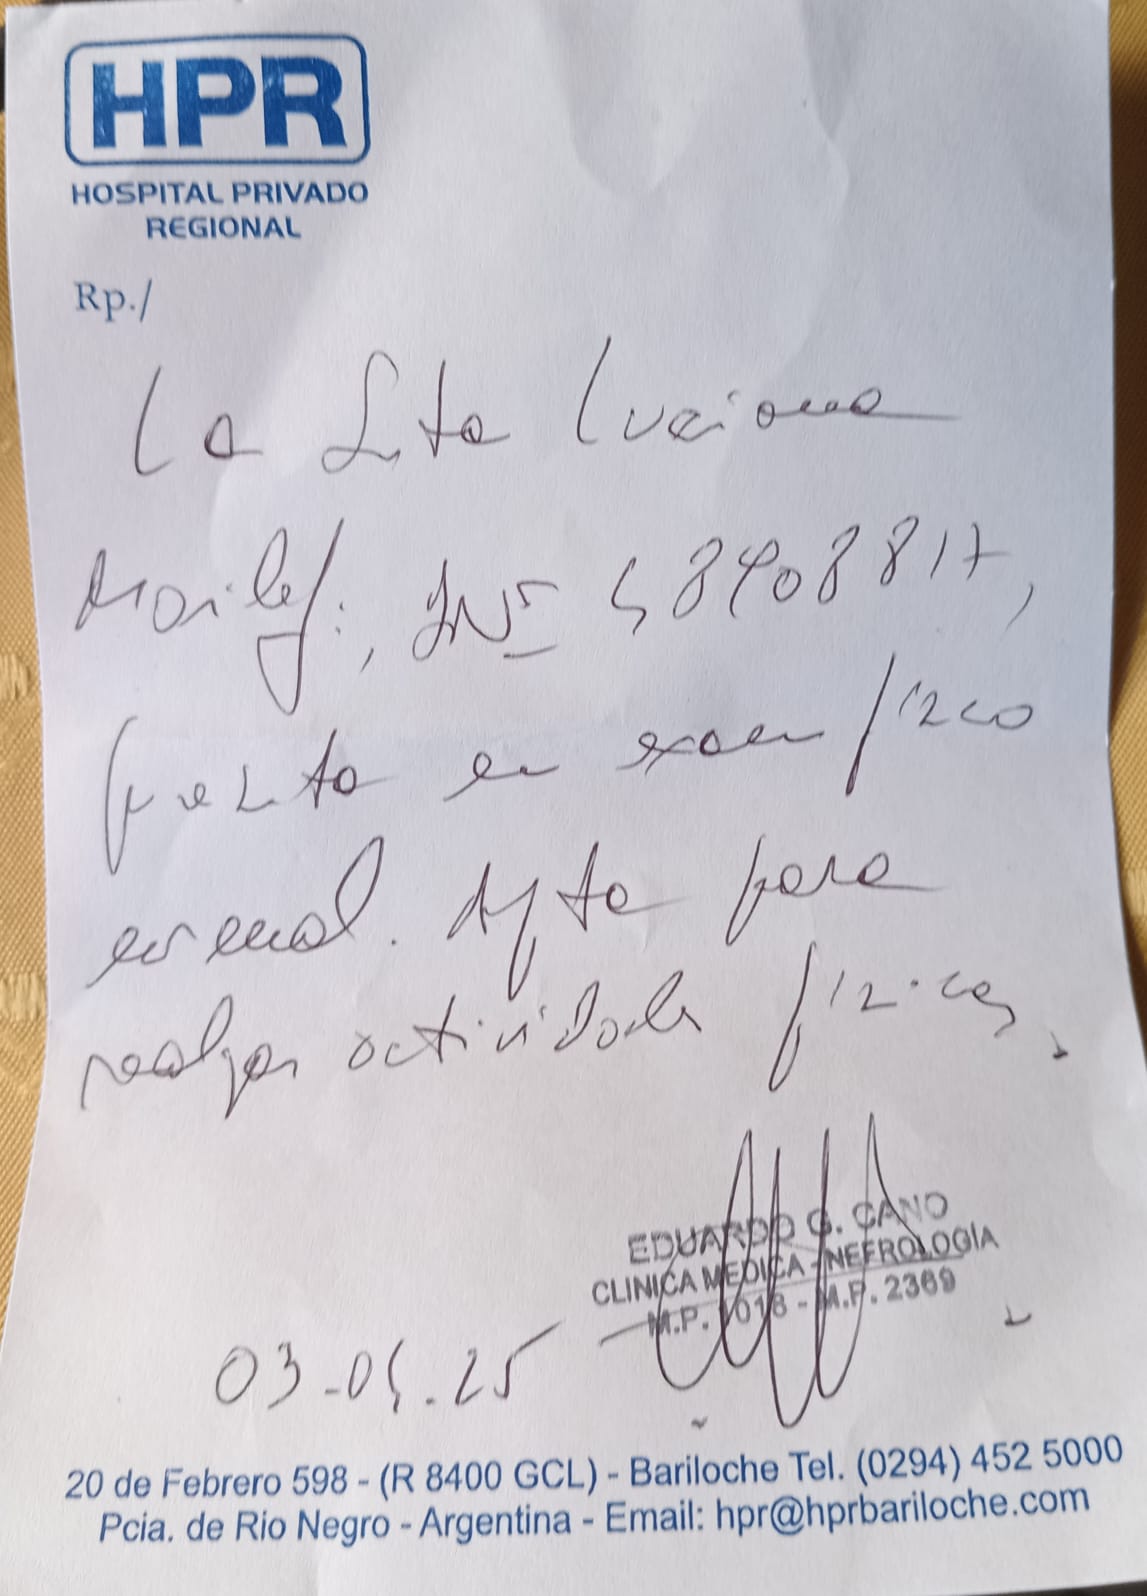 HPR
HOSPITAL PRIVADO
REGIONAL
Rp./
La Srta Luciana
DNI 48908817,
presenta en examen físico
normal. Apta para
realizar actividades físicas.
EDUARDO G. CANO
CLINICA MEDICA - NEFROLOGÍA
M.P. - M.P. 2369
03-04-25
20 de Febrero 598 - (R 8400 GCL) - Bariloche Tel. (0294) 452 5000
Pcia. de Rio Negro - Argentina - Email: hpr@hprbariloche.com